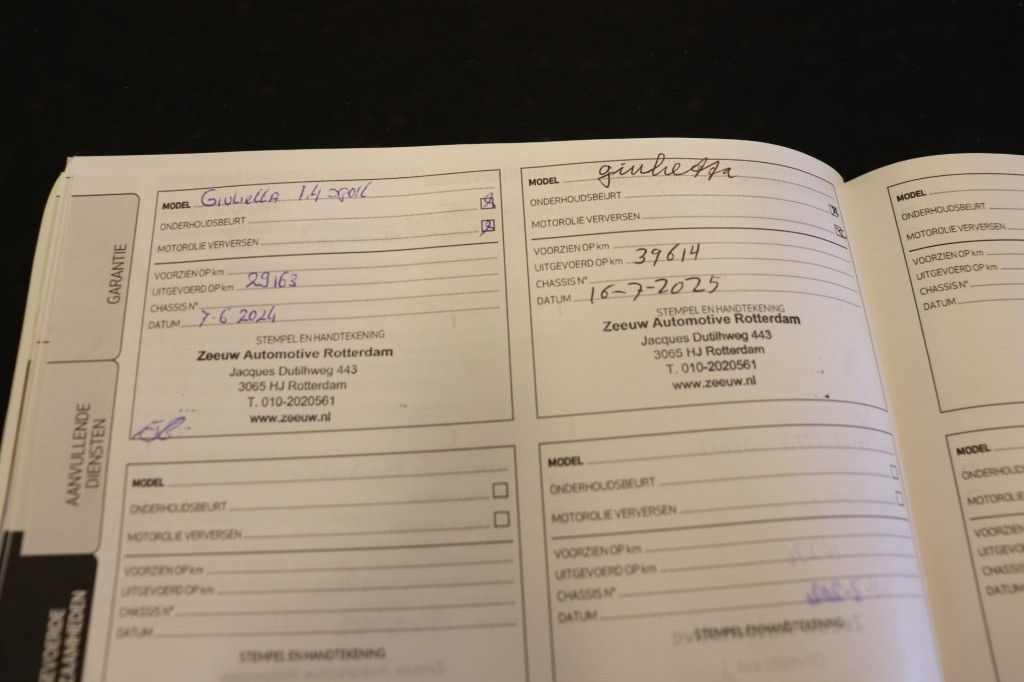 GARANTIE
AANVULLENDE
DIENSTEN
MODEL Giulietta 1.4
ONDERHOUDSBEURT
MOTOROLIE VERVERSEN
VOORZIEN OP km
UITGEVOERD OP km 29163
CHASSIS N°
DATUM 7-6-2024
STEMPEL EN HANDTEKENING
Zeeuw Automotive Rotterdam
Jacques Dutilhweg 443
3065 HJ Rotterdam
T. 010-2020561
www.zeeuw.nl
MODEL giulietta
ONDERHOUDSBEURT
MOTOROLIE VERVERSEN
VOORZIEN OP km
UITGEVOERD OP km 39614
CHASSIS N°
DATUM 16-7-2025
STEMPEL EN HANDTEKENING
Zeeuw Automotive Rotterdam
Jacques Dutilhweg 443
3065 HJ Rotterdam
T. 010-2020561
www.zeeuw.nl
MODEL
ONDERHOUDSBEURT
MOTOROLIE VERVERSEN
VOORZIEN OP km
UITGEVOERD OP km
CHASSIS N°
DATUM
STEMPEL EN HANDTEKENING
MODEL
ONDERHOUDSBEURT
MOTOROLIE VERVERSEN
VOORZIEN OP km
UITGEVOERD OP km
CHASSIS N°
DATUM
STEMPEL EN HANDTEKENING
MODEL
ONDERHOUDSBEURT
MOTOROLIE VERVERSEN
VOORZIEN OP km
UITGEVOERD OP km
CHASSIS N°
DATUM
MODEL